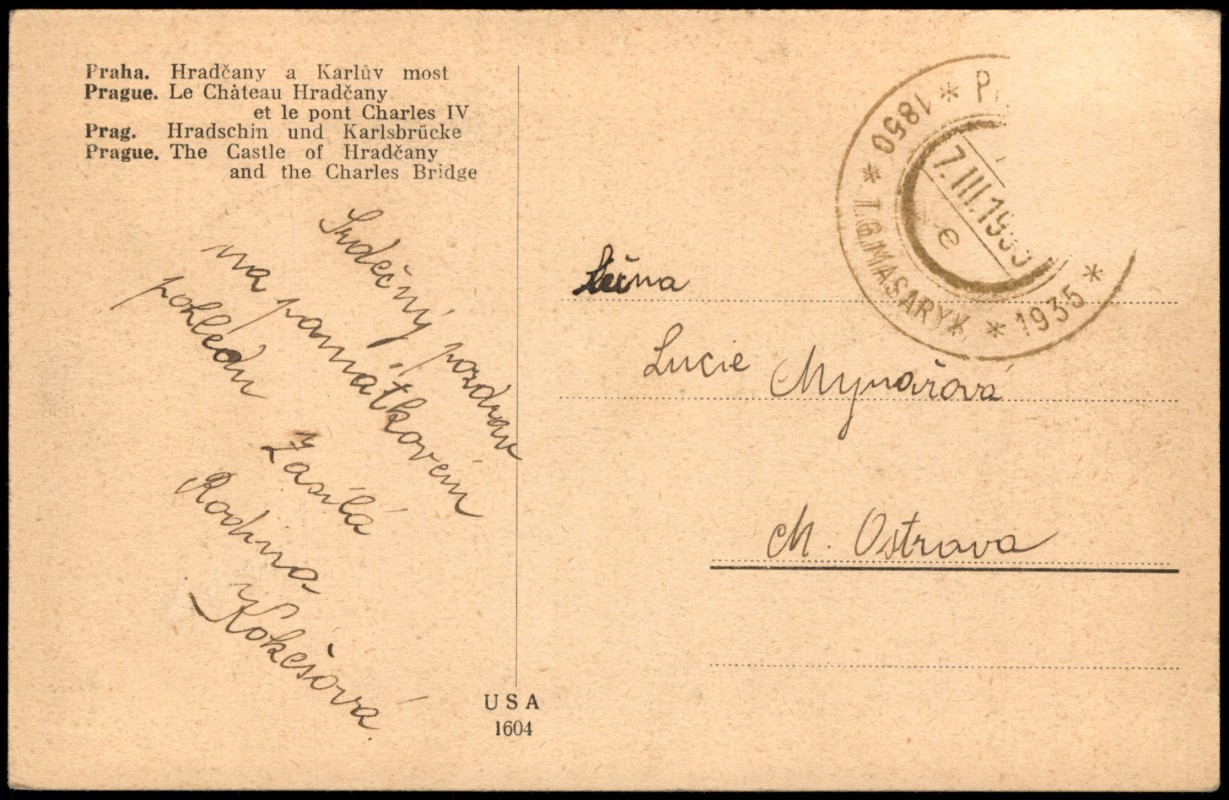 Praha. Hradčany a Karlův most
Prague. Le Château Hradčany
et le pont Charles IV
Prag. Hradschin und Karlsbrücke
Prague. The Castle of Hradčany
and the Charles Bridge
Srdečný pozdrav
na památkovém
pohledu
Zasílá
Rodina
Kokešová
USA
1604
1850 * T.G.MASARYK * 1935 *
7.III.1935
e
Lucie Mynářová
M. Ostrava